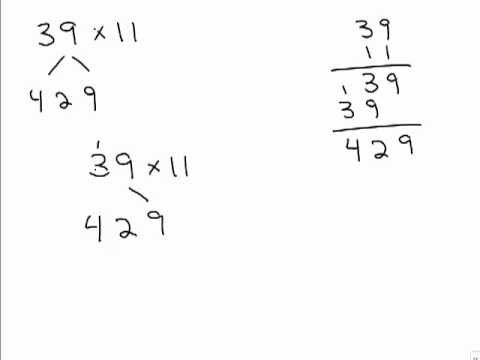 39 × 11
4 2 9
1
39 × 11
4 2 9
39
11
39
1
39
429